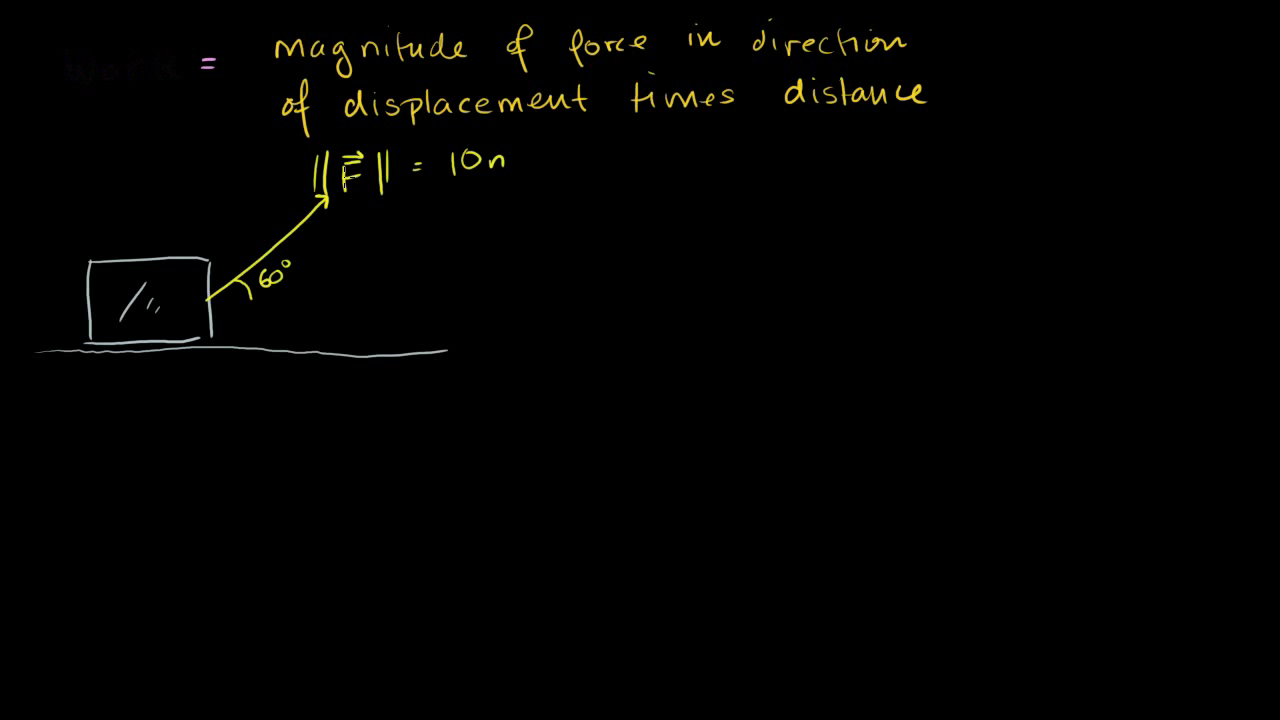 = magnitude of force in direction
of displacement times distance
‖F⃗‖ = 10n
60°